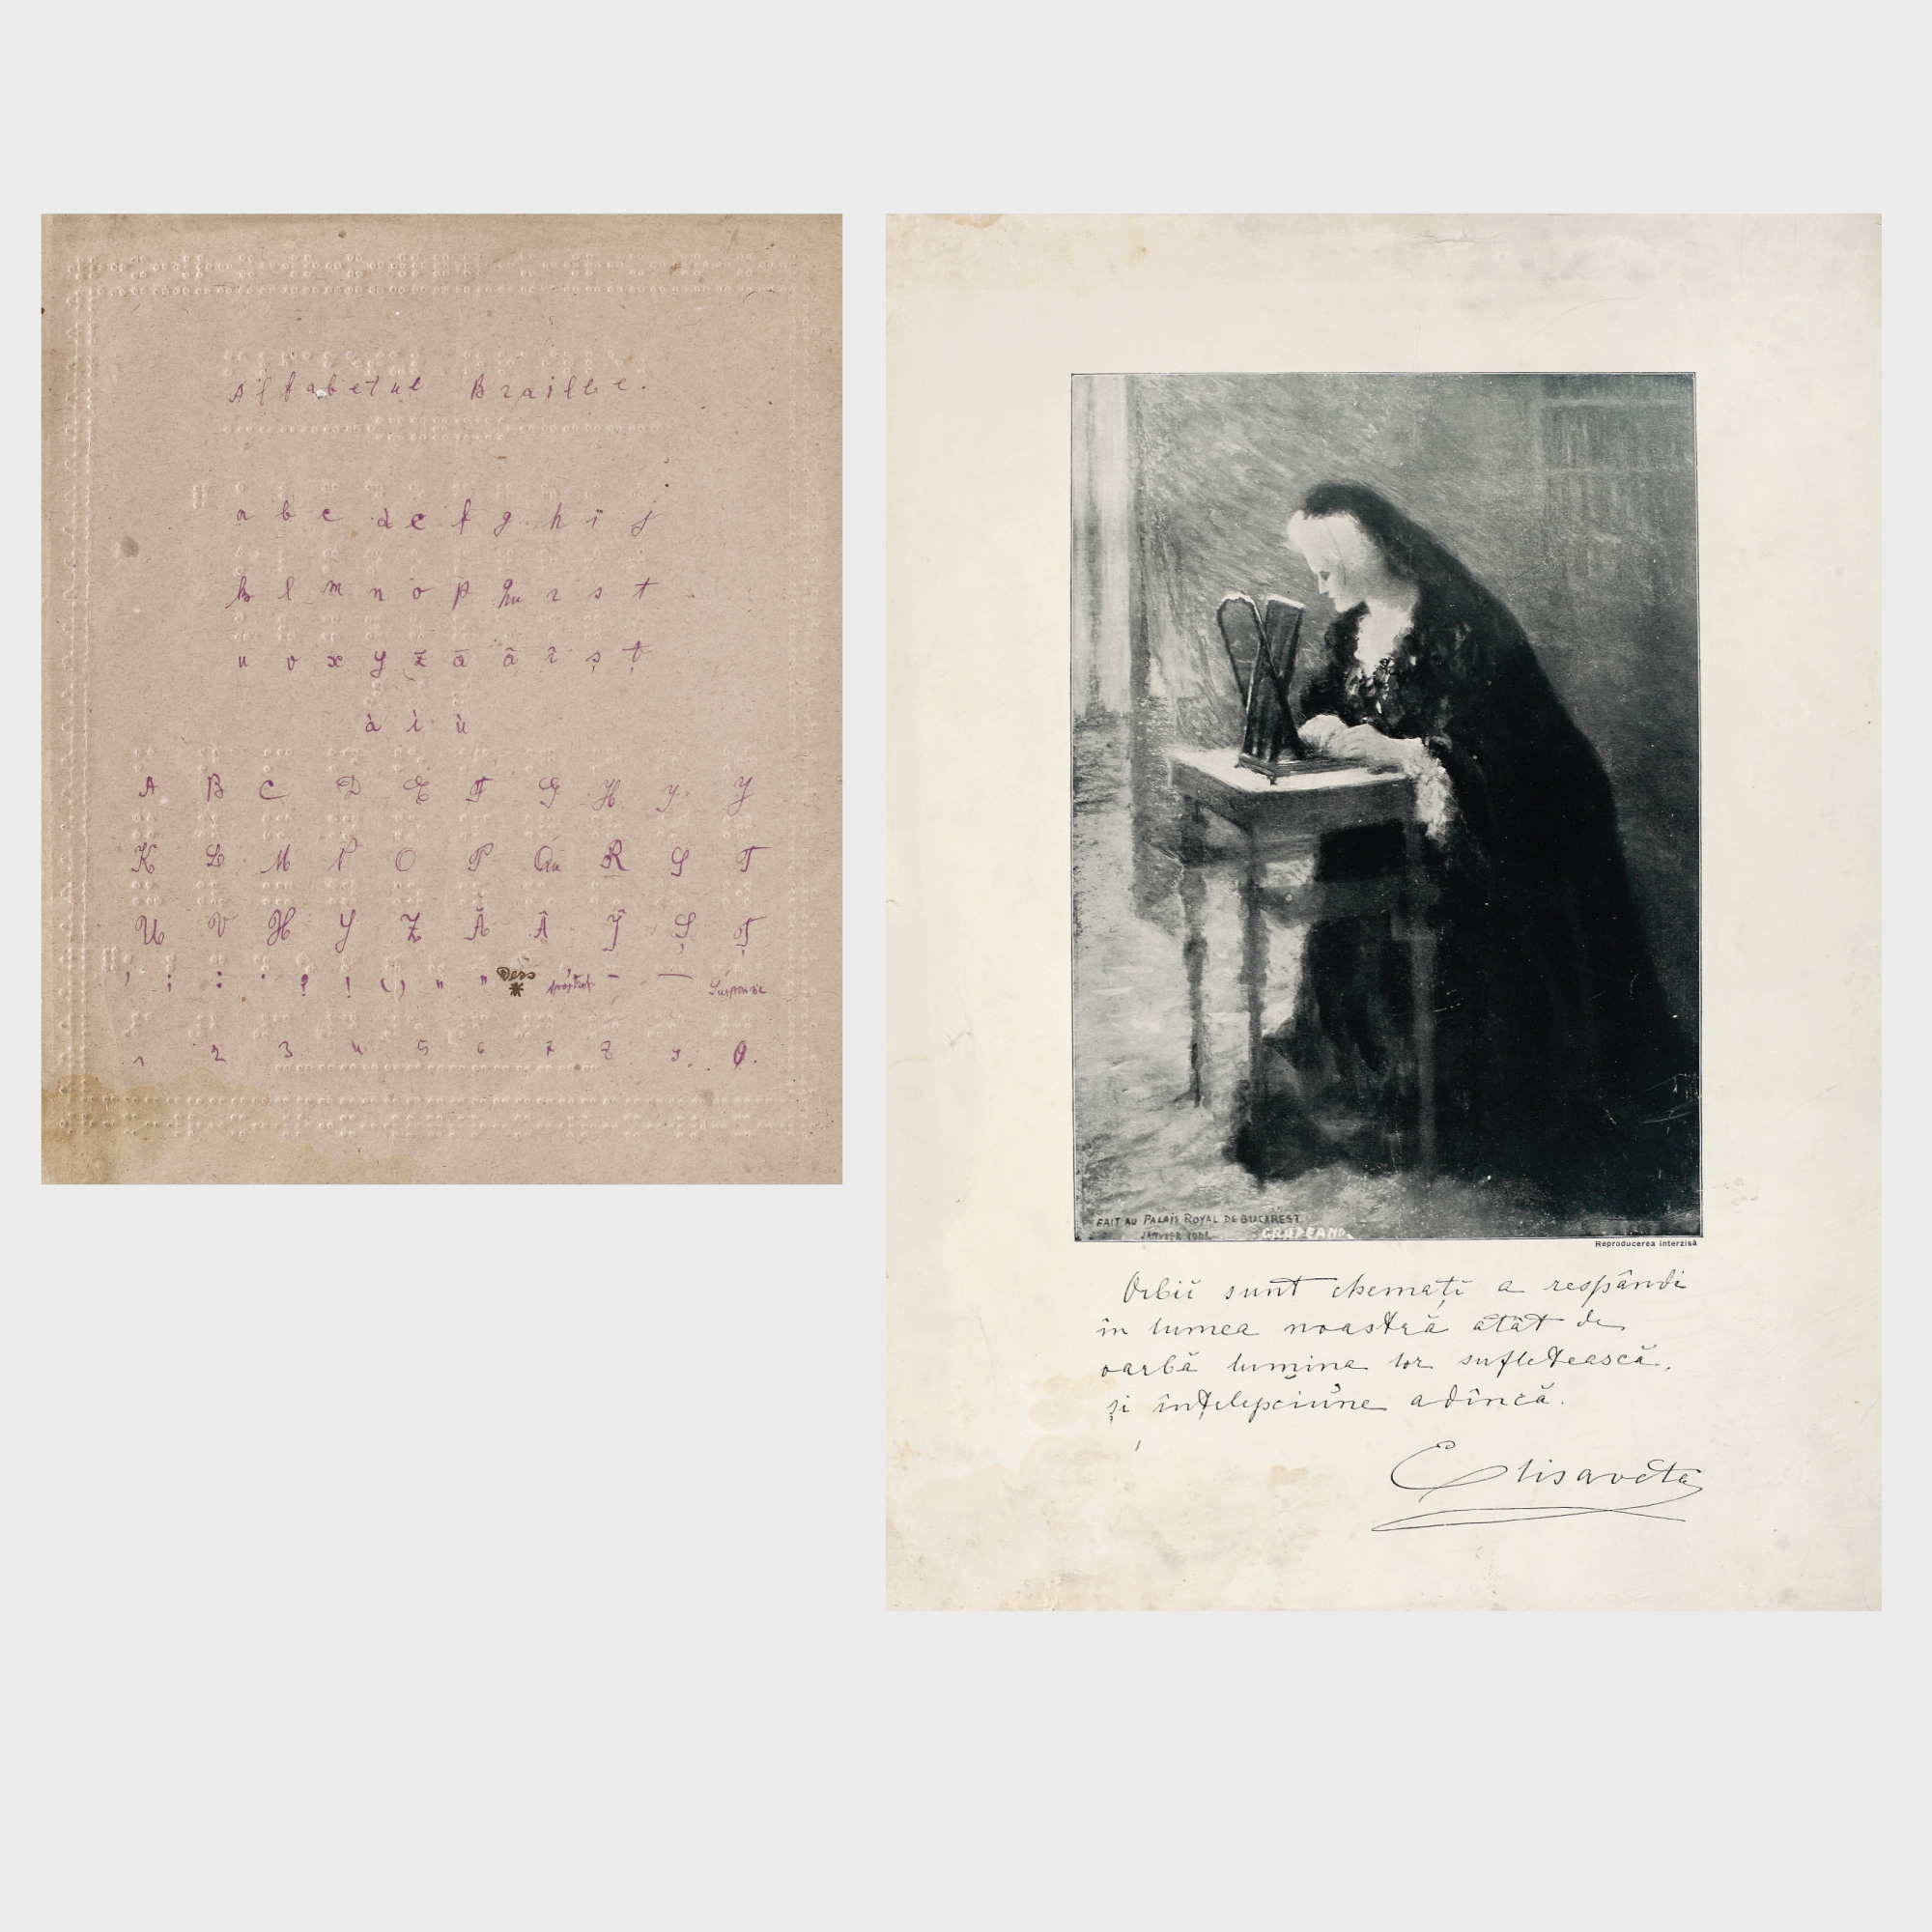 Alfabetul Braille.
a b c d e f g h i j
k l m n o p qu r s t
u v x y z ă â î ș ț
à ì ù
A B C D E F G H Y Y
K L M N O P Qu R S T
U V H Y Z Ă Â Ŷ Ș Ț
, ; : . ? ! ( ) " " Vers * Apostrof - — Suspensie
1 2 3 4 5 6 7 8 9. 0.
FAIT AU PALAIS ROYAL DE BUCAREST
JANVIER
Reproducerea interzisă
Orbiĭ sunt chemațĭ a respândi
în lumea noastră atât de
oarbă lumina lor sufletească,
și înțelepciune adîncă.
Elisaveta